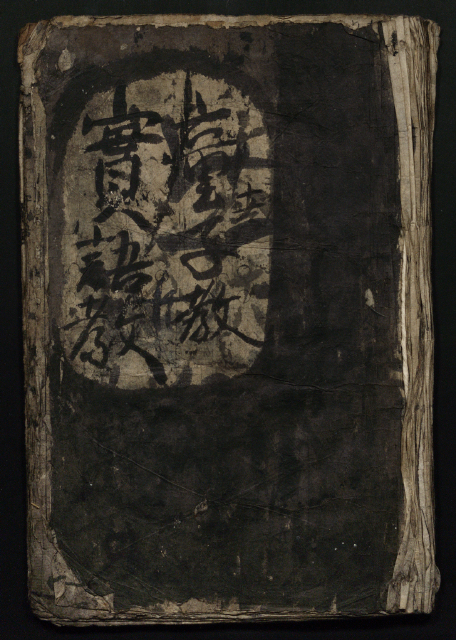 童子教
實語教